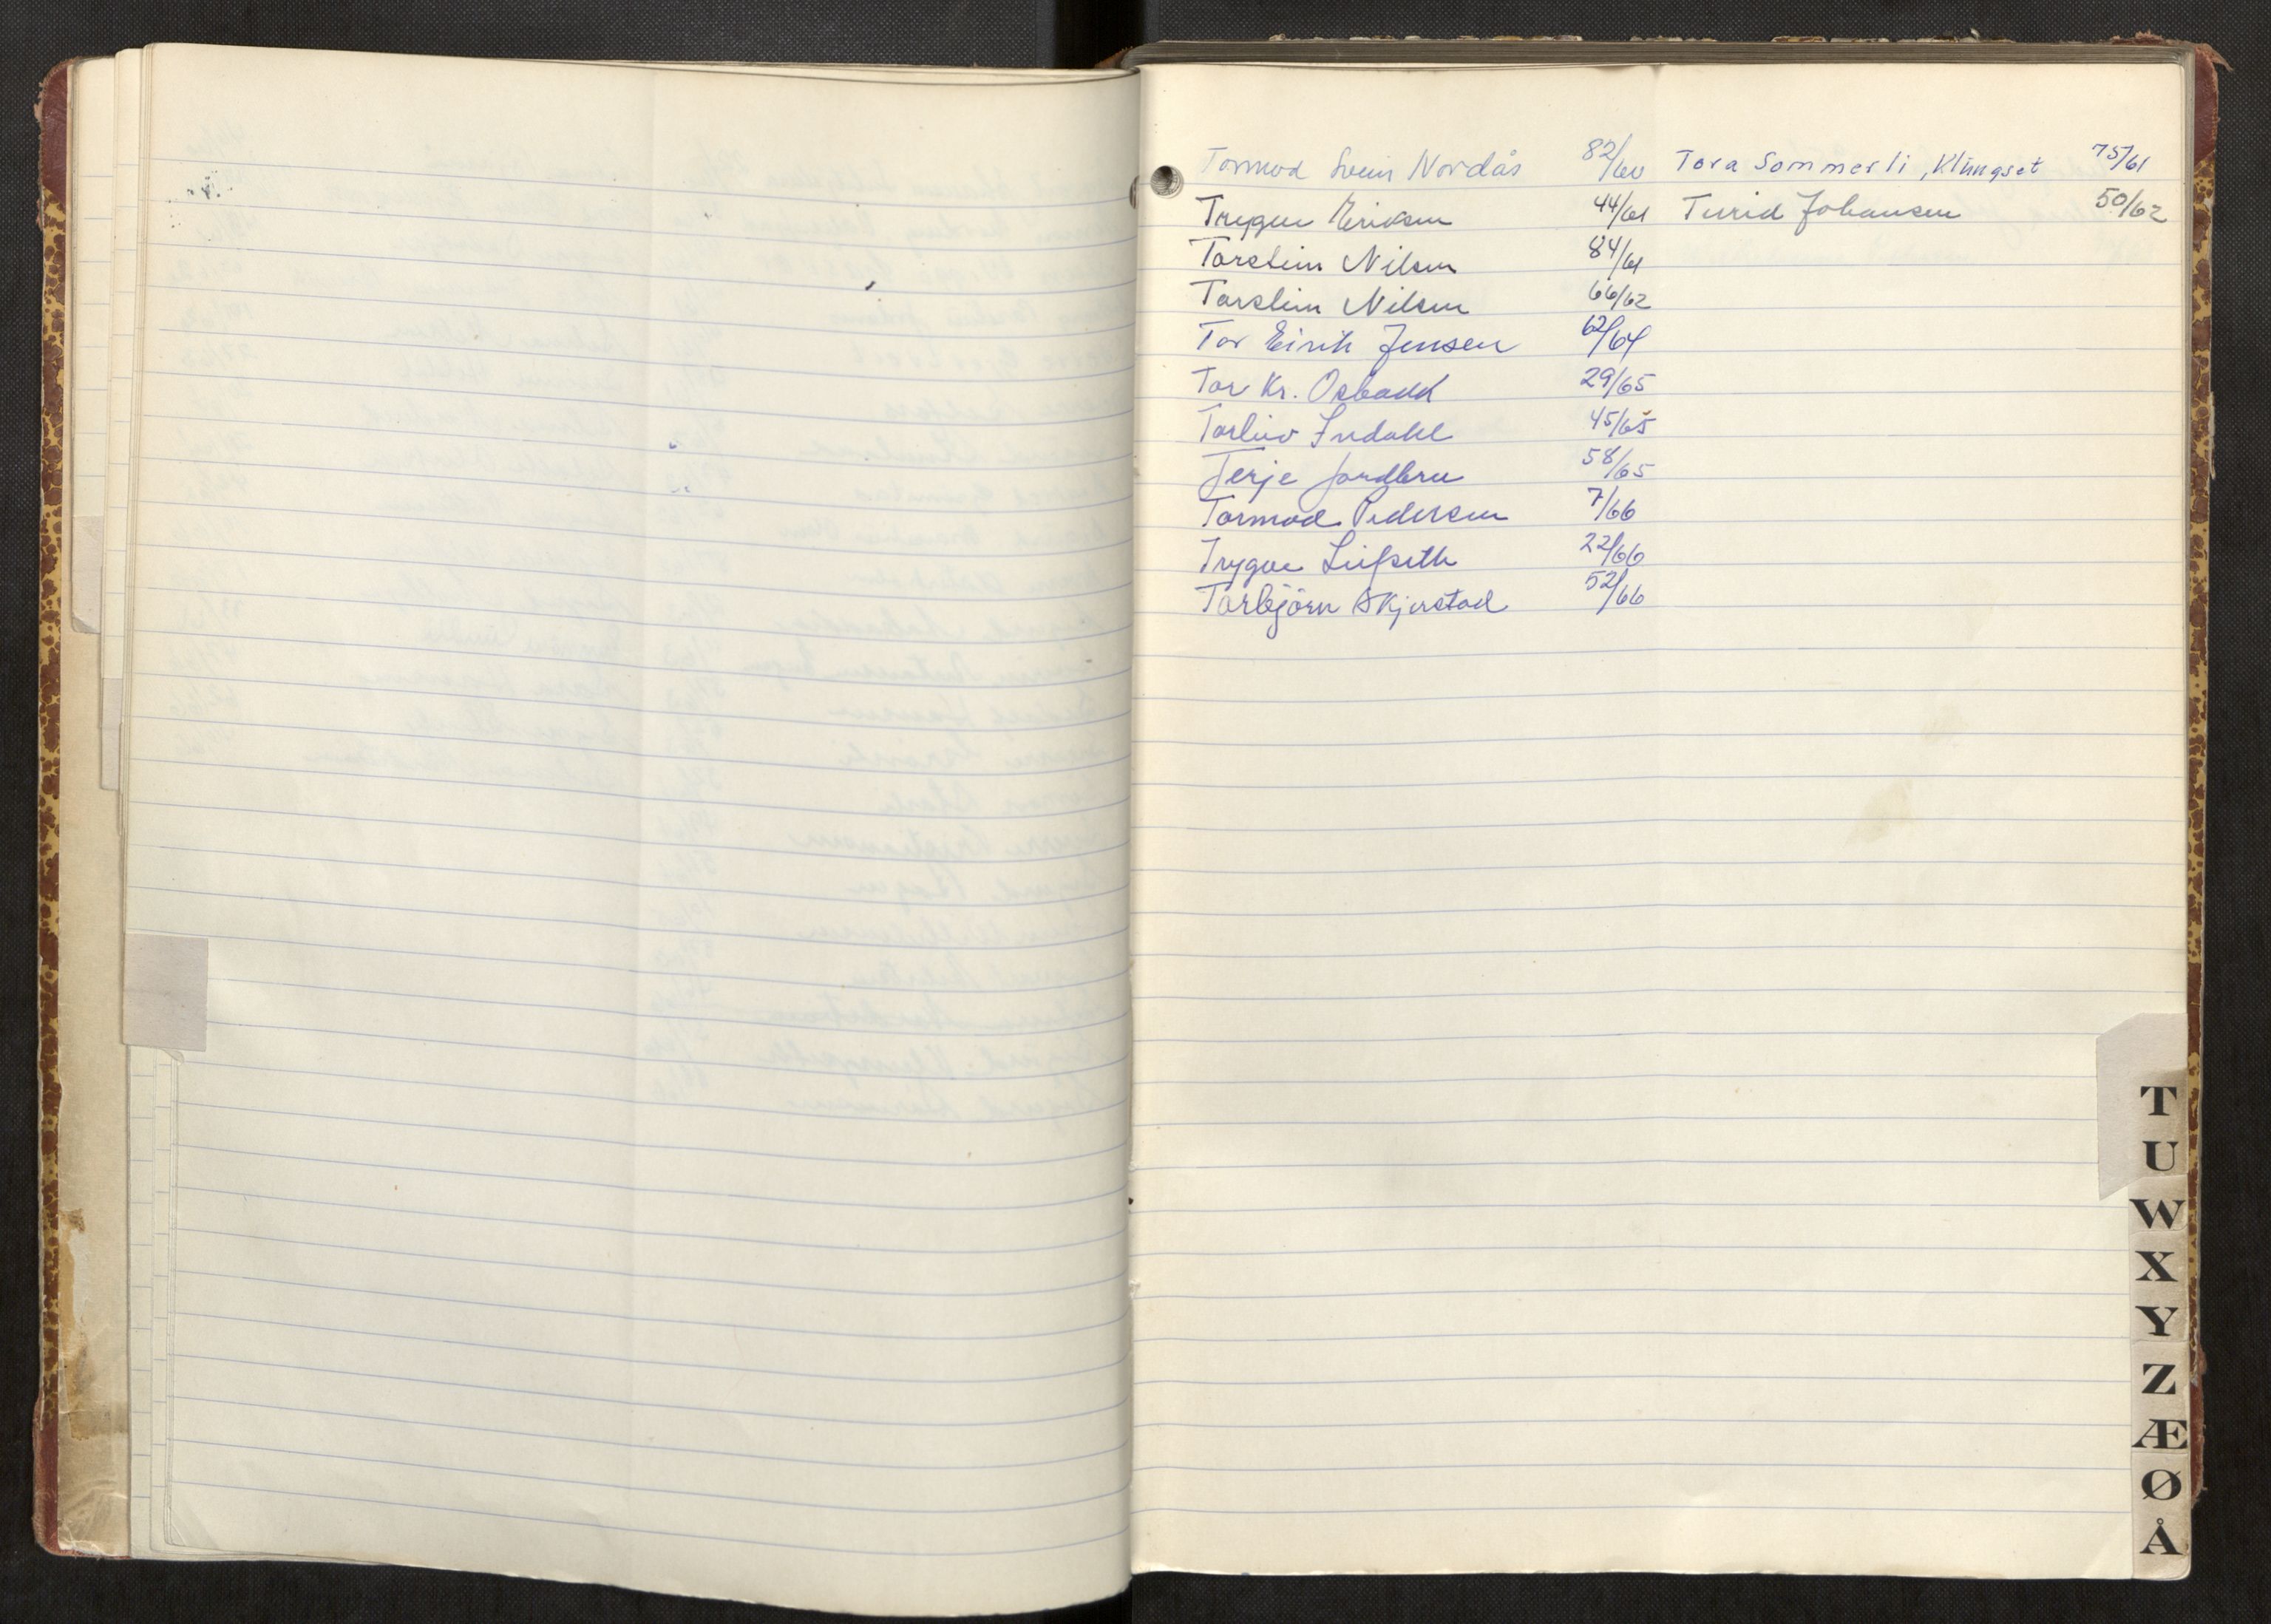 Tormod Svein Nordås 82/60
Trygve Eriksen 44/61
Torstein Nilsen 84/61
Torstein Nilsen 66/62
Tor Eirik Jensen 62/64
Tor Kr. Osbakk 29/65
Torleiv Indahl 45/65
Terje Jordbru 58/65
Tormod Pedersen 7/66
Trygve Leifseth 22/66
Torbjörn Skjerstad 52/66
Tora Sommerli, Klungset 75/61
Turid Johansen 50/62
T
U
W
X
Y
Z
Æ
Ø
Å